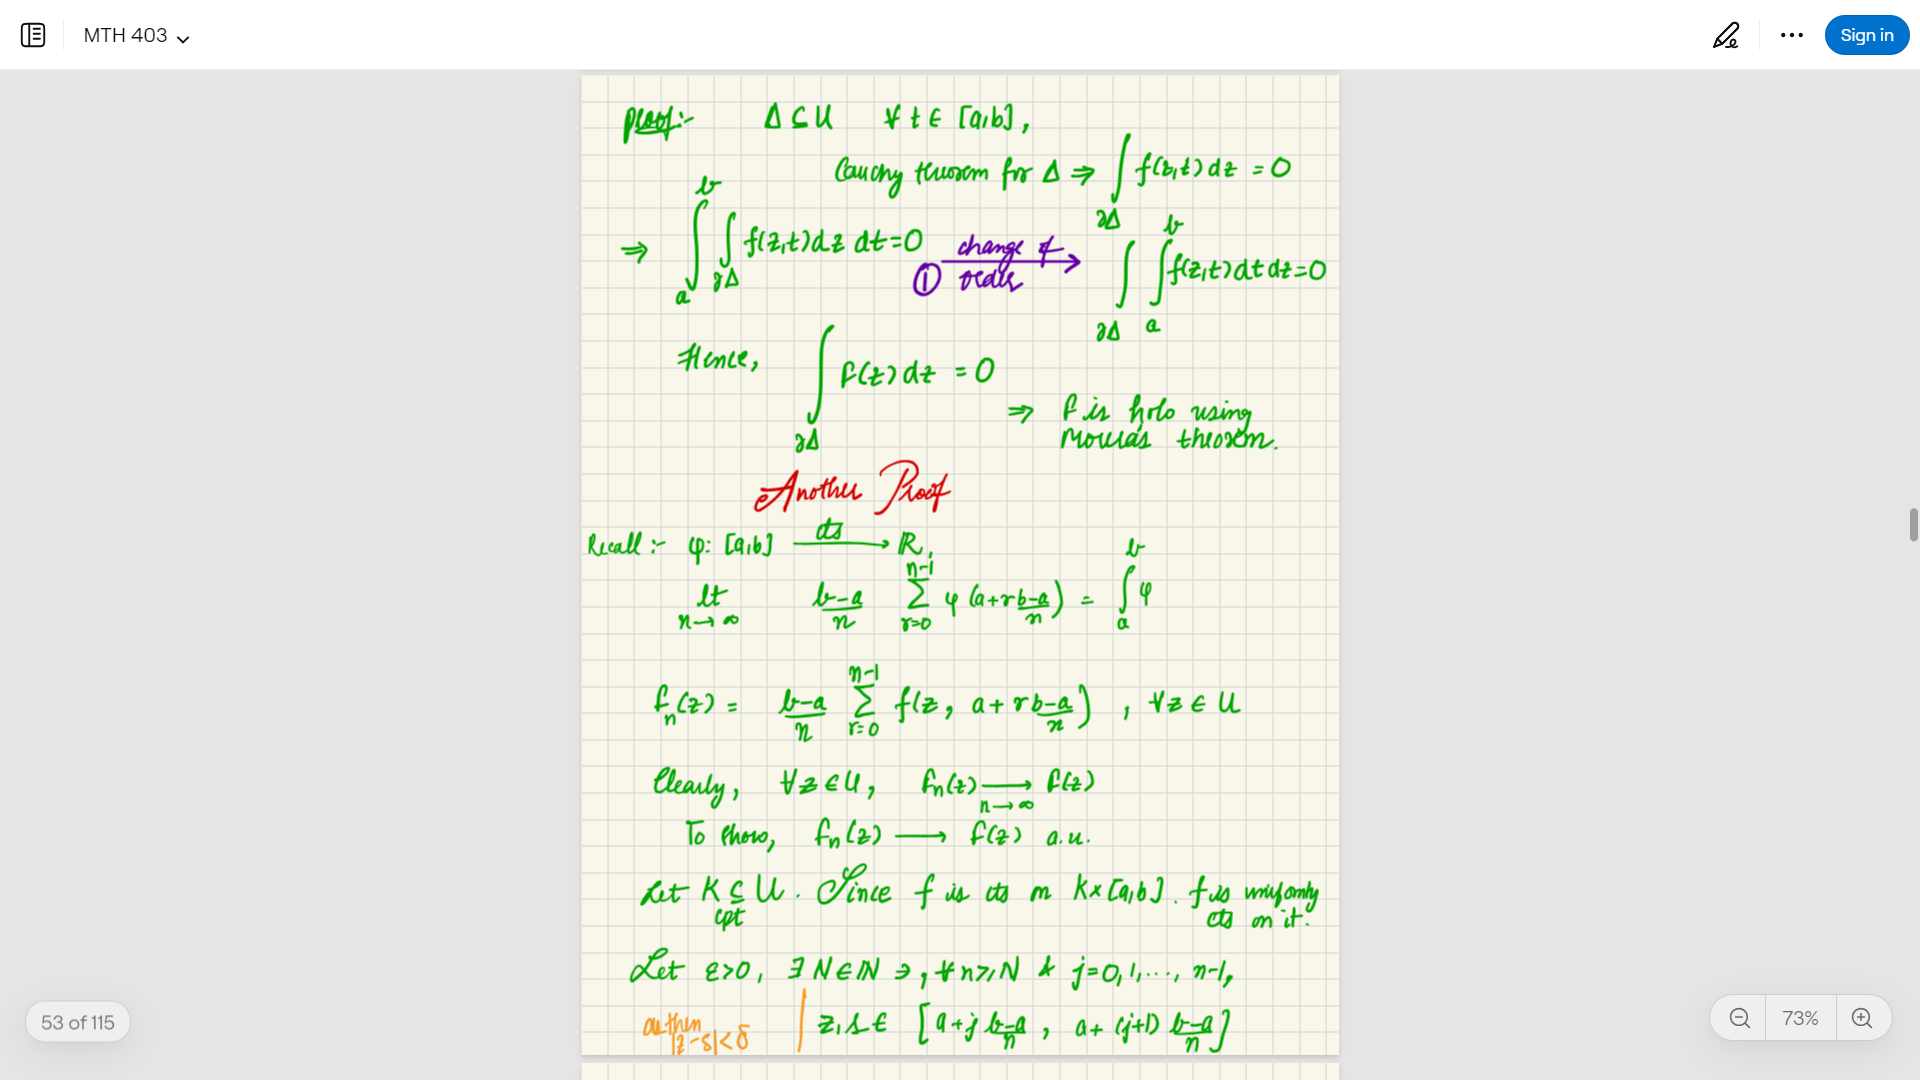 MTH 403
Sign in
Proof:- Δ ⊆ U ∀ t ∈ [a,b],
Cauchy theorem for Δ ⇒ ∫_{∂Δ} f(z,t) dz = 0
⇒ ∫_a^b ∫_{∂Δ} f(z,t) dz dt = 0 ① change of order → ∫_{∂Δ} ∫_a^b f(z,t) dt dz = 0
Hence, ∫_{∂Δ} F(z) dz = 0
⇒ F is holo using
Morera's theorem.
Another Proof
Recall:- φ: [a,b] cts → ℝ,
lt_{n→∞} (b-a)/n Σ_{r=0}^{n-1} φ(a+r (b-a)/n) = ∫_a^b φ
F_n(z) = (b-a)/n Σ_{r=0}^{n-1} f(z, a+r (b-a)/n), ∀ z ∈ U
Clearly, ∀ z ∈ U, F_n(z) →_{n→∞} F(z)
To show, F_n(z) → F(z) a.u.
Let K ⊆ U cpt. Since f is cts on K×[a,b]. f is uniformly
cts on it.
Let ε>0, ∃ N ∈ ℕ ∋, ∀ n ≥ N & j=0,1,..., n-1,
as then |z-s|<δ | z,s ∈ [a+j (b-a)/n, a+(j+1) (b-a)/n]
53 of 115
73%